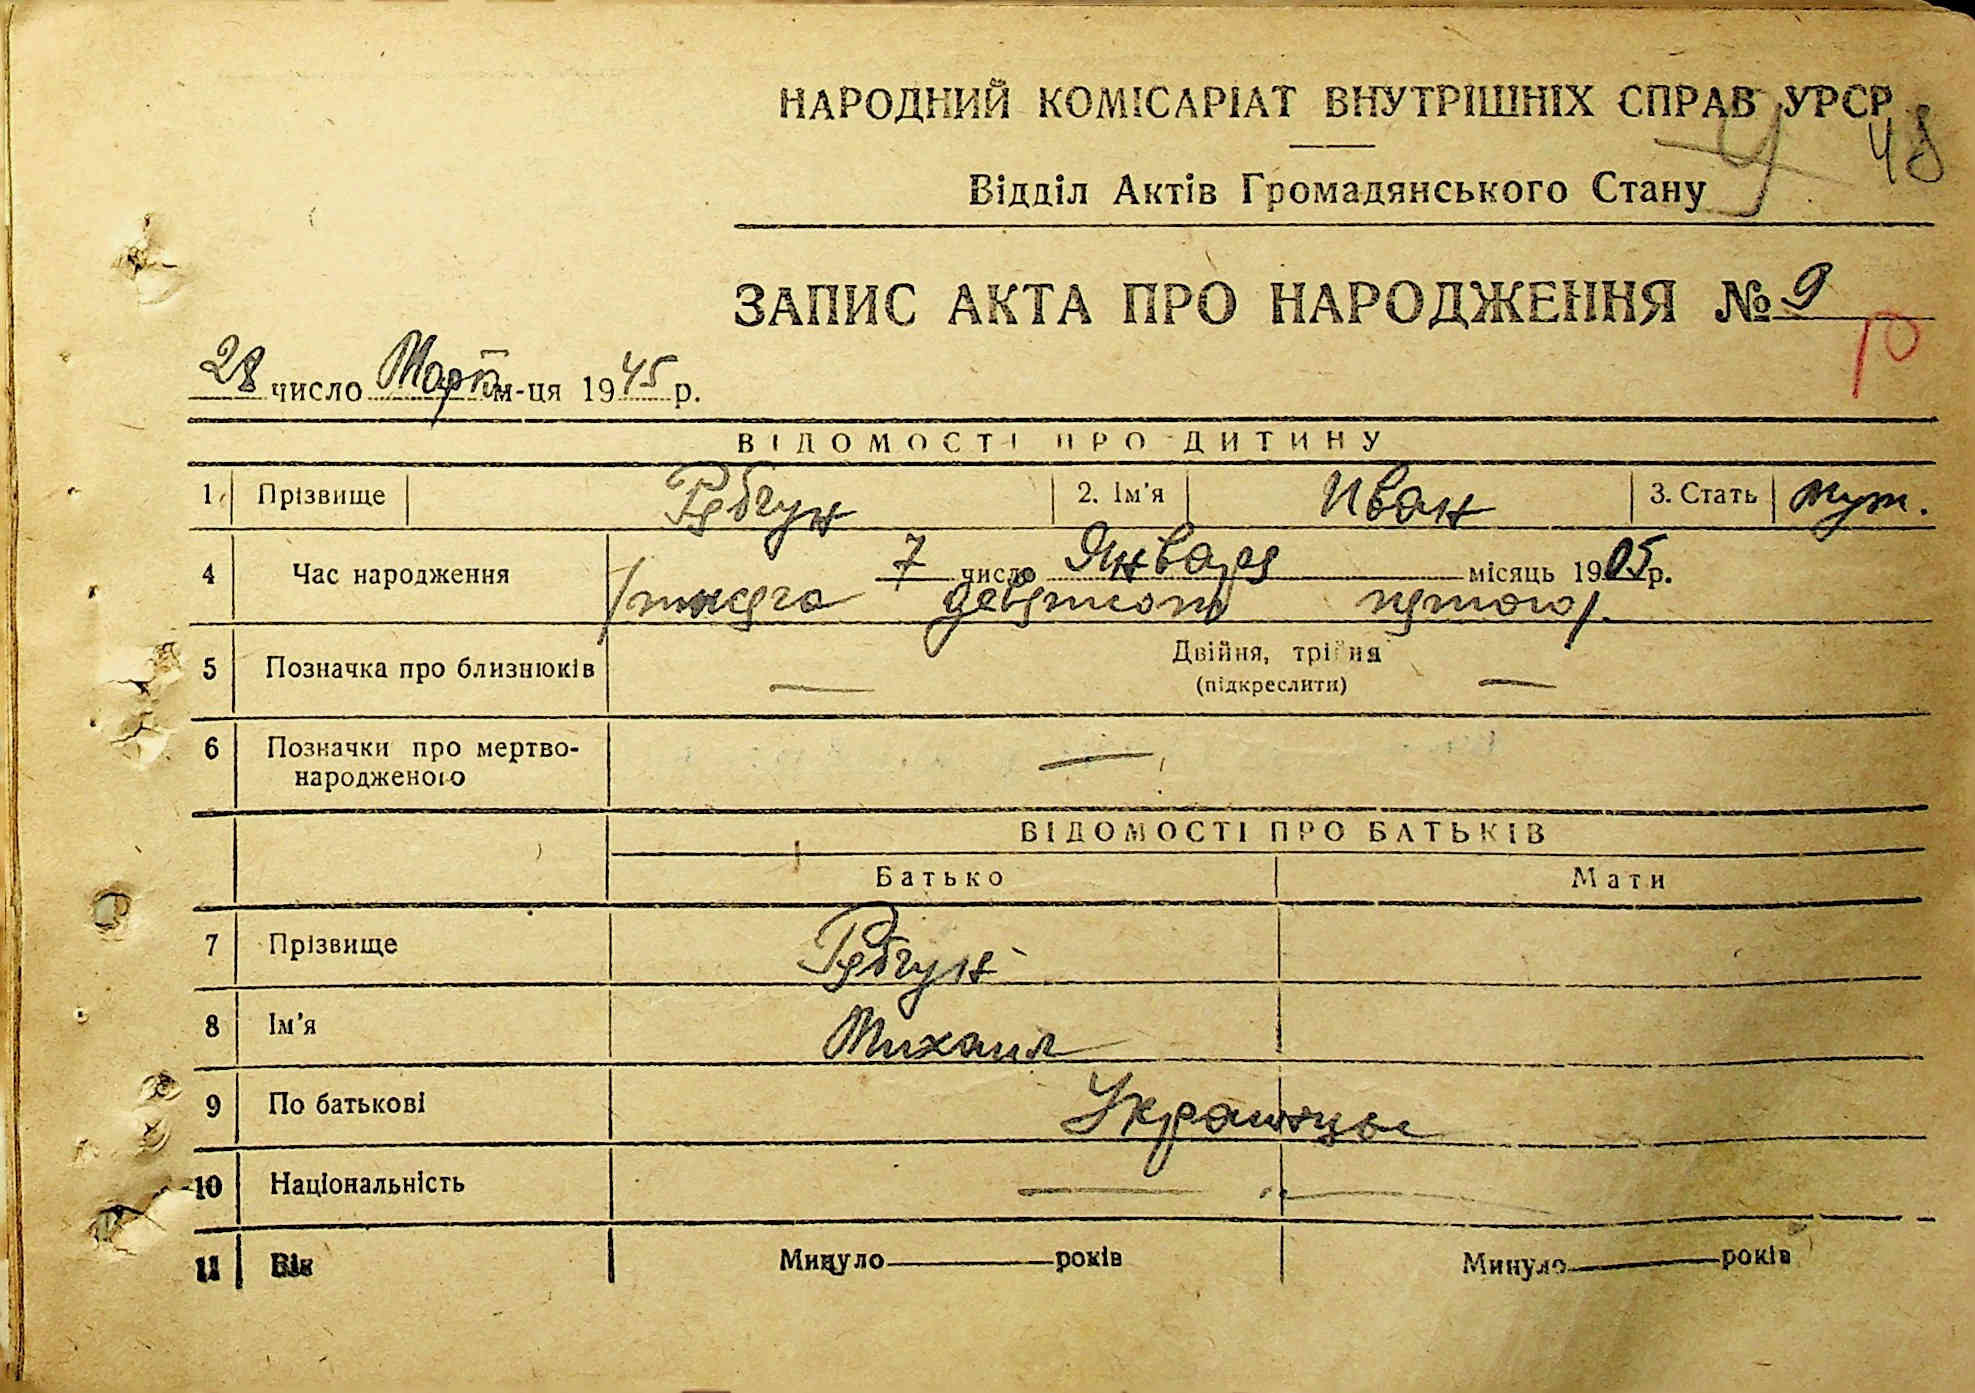 НАРОДНИЙ КОМІСАРІАТ ВНУТРІШНІХ СПРАВ УРСР
48
Відділ Актів Громадянського Стану
ЗАПИС АКТА ПРО НАРОДЖЕННЯ № 9
10
28 число Март м-ця 1945 р.
ВІДОМОСТІ ПРО ДИТИНУ
1 Прізвище Рябчун 2. Ім'я Иван 3. Стать муж.
4 Час народження 7 число Января місяць 1905 р.
/тисяча девятсот пятого/.
5 Позначка про близнюків — Двійня, трійня —
(підкреслити)
6 Позначки про мертво-
народженого —
ВІДОМОСТІ ПРО БАТЬКІВ
Батько Мати
7 Прізвище Рябчун
8 Ім'я Михаил
9 По батькові Украинцы
10 Національність — —
11 Вік Минуло — років Минуло — років